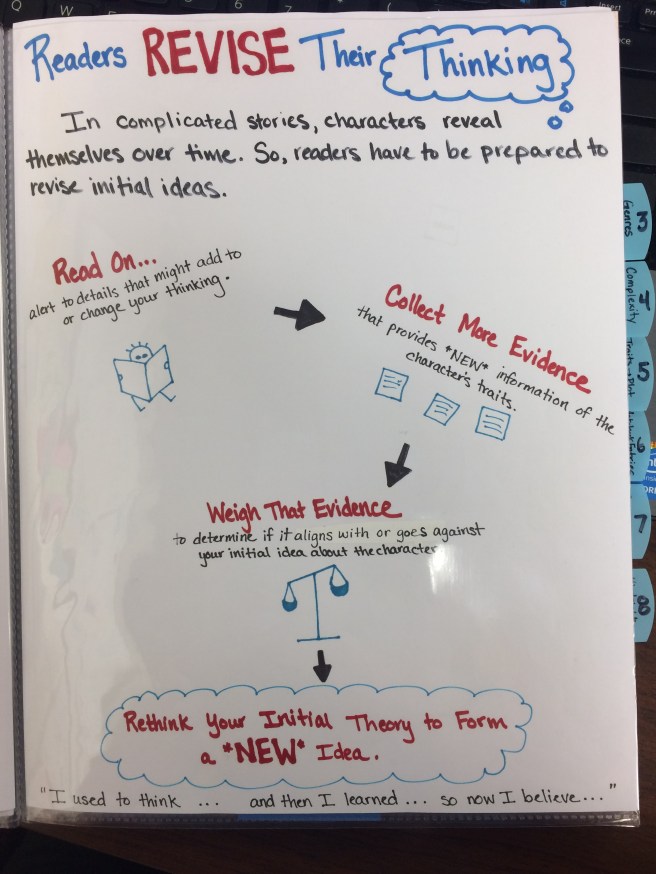 Readers REVISE Their Thinking
In complicated stories, characters reveal
themselves over time. So, readers have to be prepared to
revise initial ideas.
Read On...
alert to details that might add to
or change your thinking.
Collect More Evidence
that provides *NEW* information of the
character's traits.
Weigh That Evidence
to determine if it aligns with or goes against
your initial idea about the character
Rethink Your Initial Theory to Form
a *NEW* Idea.
"I used to think ... and then I learned ... so now I believe..."
3
Genres
4
Complexity
5
6
7
8